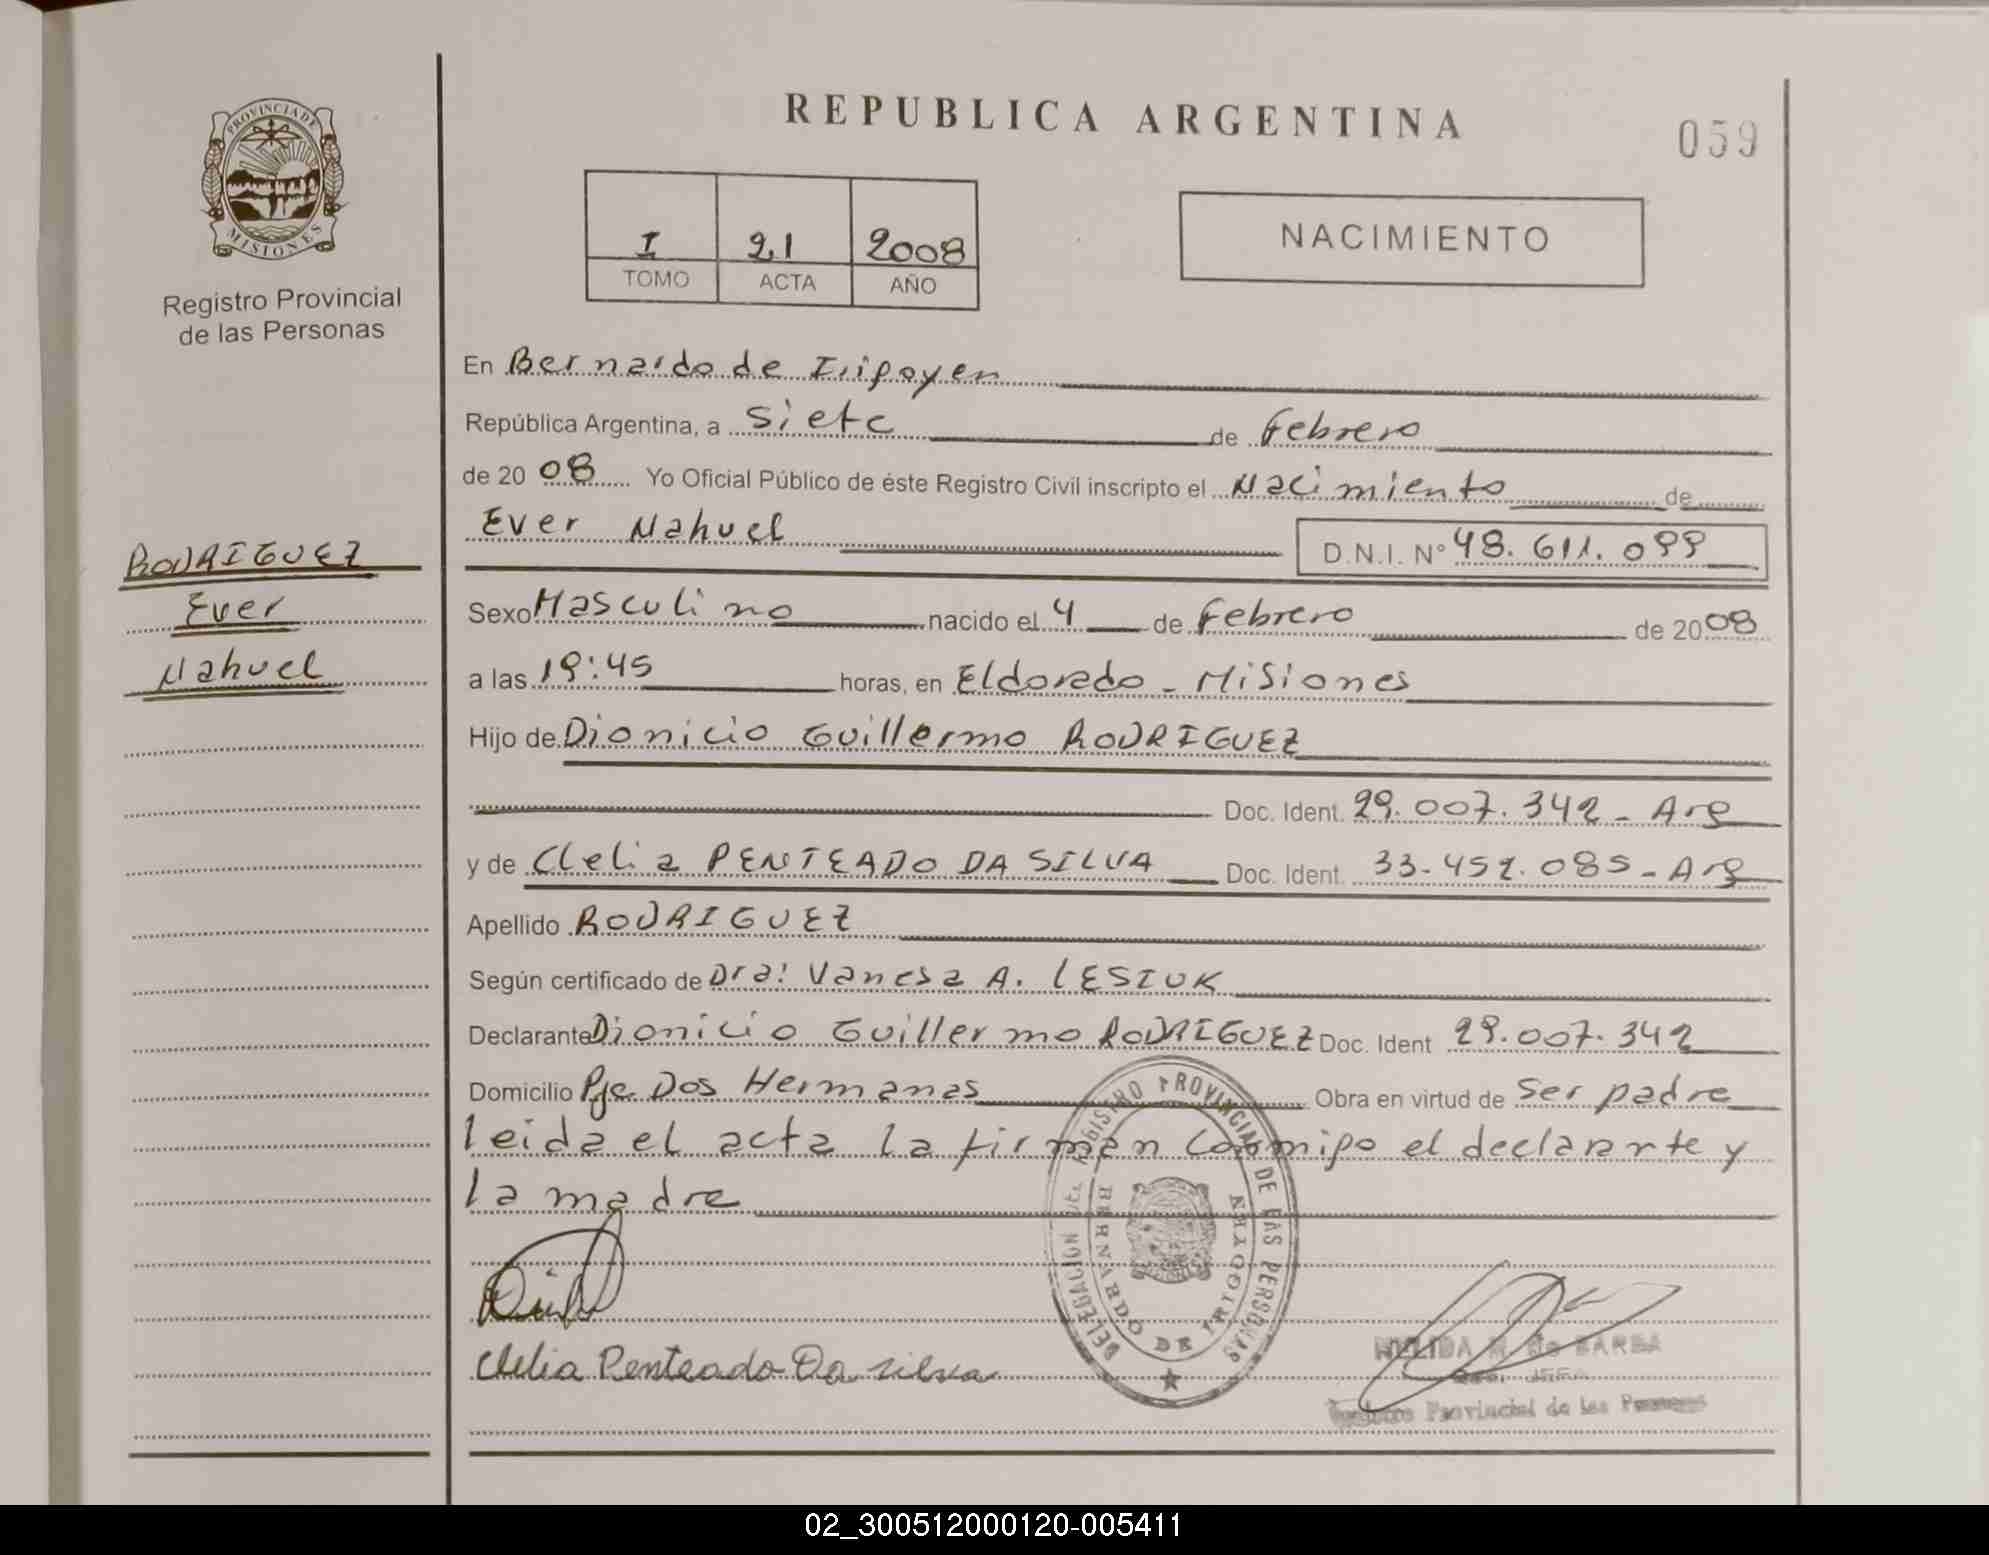 REPUBLICA ARGENTINA
059
PROVINCIA DE
MISIONES
Registro Provincial
de las Personas
I 21 2008
TOMO ACTA AÑO
NACIMIENTO
En Bernardo de Irigoyen
República Argentina, a Siete de Febrero
de 2008 Yo Oficial Público de éste Registro Civil inscripto el Nacimiento de
Ever Nahuel D.N.I. N° 48.611.099
RODRIGUEZ
Ever
Nahuel
Sexo Masculino nacido el 4 de Febrero de 2008
a las 19:45 horas, en Eldorado - Misiones
Hijo de Dionicio Guillermo RODRIGUEZ
Doc. Ident. 29.007.342 - Arg
y de Clelia PENTEADO DA SILVA Doc. Ident. 33.457.085 - Arg
Apellido RODRIGUEZ
Según certificado de Dra: Vanesa A. LESIUK
Declarante Dionicio Guillermo RODRIGUEZ Doc. Ident 29.007.342
Domicilio Pje Dos Hermanas Obra en virtud de Ser padre
leida el acta la firman conmigo el declarante y
la madre
DELEGACION DEL REGISTRO PROVINCIAL DE LAS PERSONAS
BERNARDO DE IRIGOYEN
Clelia Penteado Da silva
de BARBA
JEFA
Provincial de las Personas
02_300512000120-005411